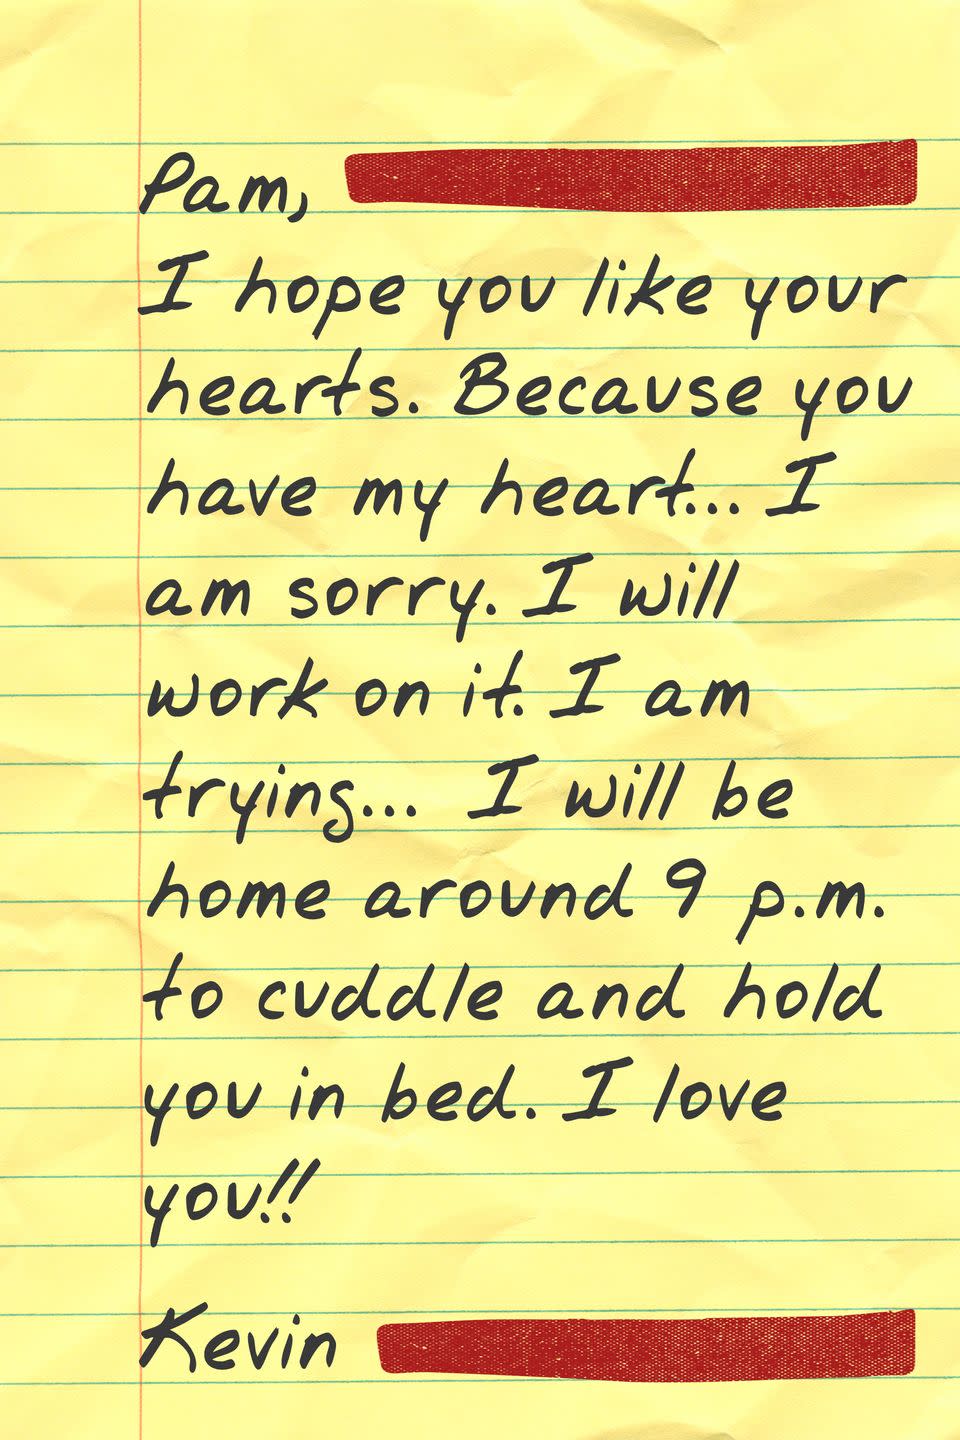 Pam,
I hope you like your
hearts. Because you
have my heart... I
am sorry. I will
work on it. I am
trying... I will be
home around 9 p.m.
to cuddle and hold
you in bed. I love
you!!
Kevin